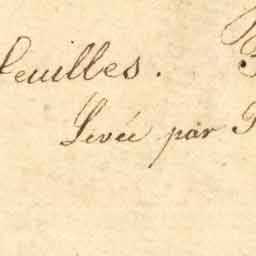 feuilles.
Levée par